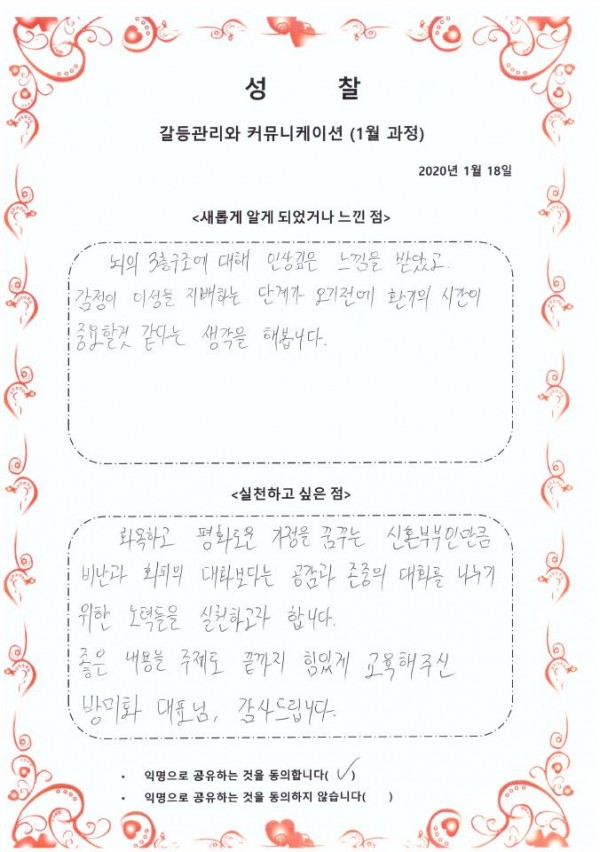 성 찰
갈등관리와 커뮤니케이션 (1월 과정)
2020년 1월 18일
<새롭게 알게 되었거나 느낀 점>
뇌의 3층구조에 대해 인상깊은 느낌을 받았고.
감정이 이성을 지배하는 단계가 오기전에 환기의 시간이
중요할것 같다는 생각을 해봅니다.
<실천하고 싶은 점>
화목하고 평화로운 가정을 꿈꾸는 신혼부부인만큼
비난과 회피의 대화보다는 공감과 존중의 대화를 나누기
위한 노력들을 실천하고자 합니다.
좋은 내용을 주제로 끝까지 힘있게 교육해주신
방미화 대표님, 감사드립니다.
• 익명으로 공유하는 것을 동의합니다( ✓ )
• 익명으로 공유하는 것을 동의하지 않습니다( )